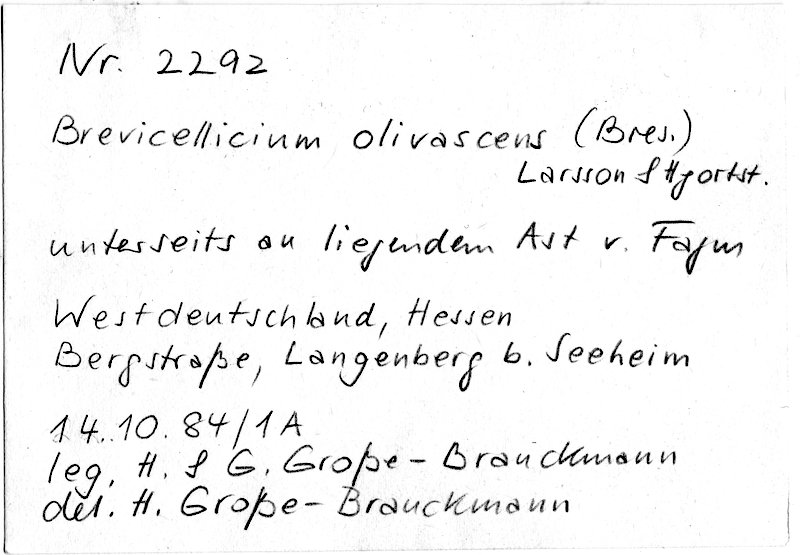 Nr. 2292
Brevicellicium olivascens (Bres.)
Larsson & Hjortst.
unterseits an liegendem Ast v. Fagus
Westdeutschland, Hessen
Bergstraße, Langenberg b. Seeheim
14.10.84/1A
leg. H. & G. Große-Brauckmann
det. H. Große-Brauckmann